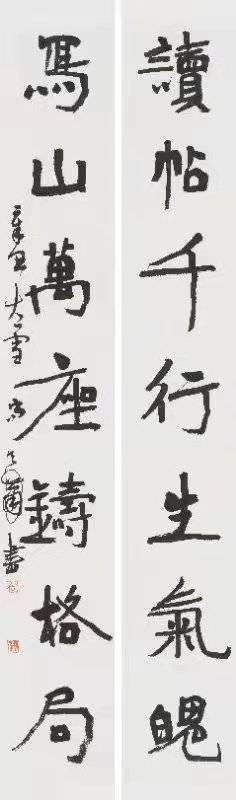 讀帖千行生氣魄
寫山萬座鑄格局
辛丑大雪